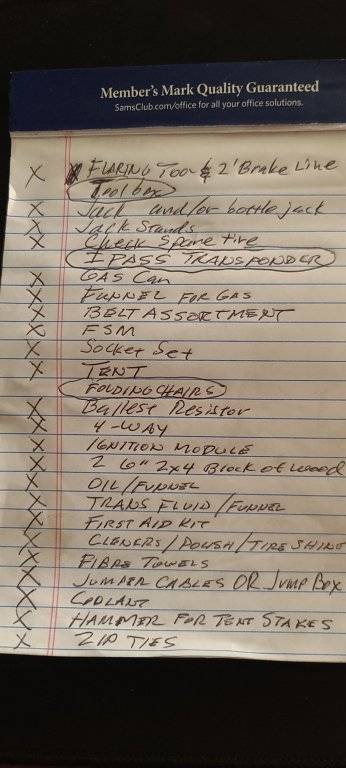 Member's Mark Quality Guaranteed
SamsClub.com/office for all your office solutions.
X FLARING TOOL & 2' Brake Line
Toolbox
X Jack and/or bottle jack
X Jack Stands
X Check Spare tire
I PASS TRANSPONDER
X GAS Can
X FUNNEL FOR GAS
X BELT ASSORTMENT
X FSM
X Socket Set
X TENT
FOLDING CHAIRS
X Ballest Resistor
X 4-WAY
X IGNITION MODULE
X 2 6" 2x4 Block of Wood
X OIL/FUNNEL
X TRANS FLUID/FUNNEL
X FIRST AID KIT
X CLENERS/POLISH/TIRE SHINE
X FIBRE TOWELS
X JUMPER CABLES OR Jump Box
X COOLANT
X HAMMER FOR TENT STAKES
X ZIP TIES